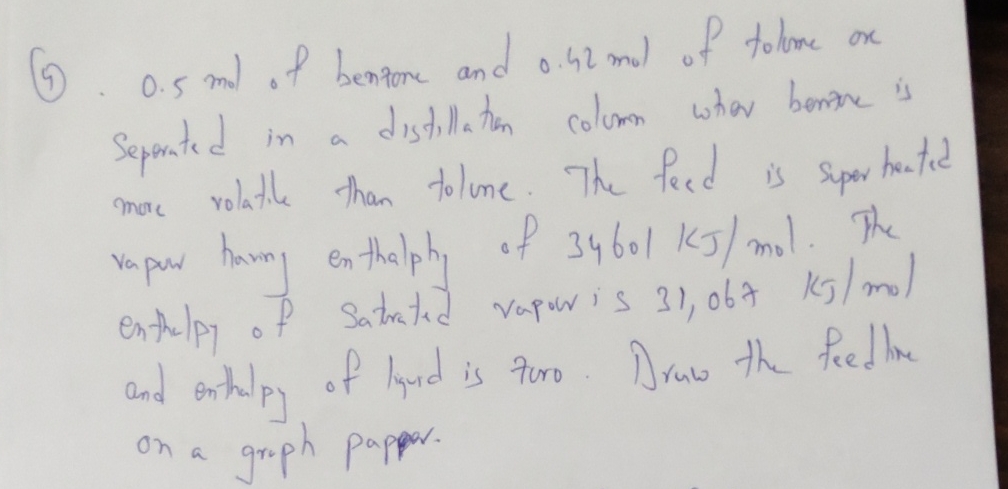 (4) . 0.5 mol of benzene and 0.42 mol of tolune are
Seperated in a distillation column wher benzene is
more volatile than tolune. The feed is super heated
vapour having enthalphy of 34601 KJ/mol. The
enthalpy of Satrated vapour is 31,067 KJ/mol
and enthalpy of liquid is zero. Draw the feedline
on a graph papper.